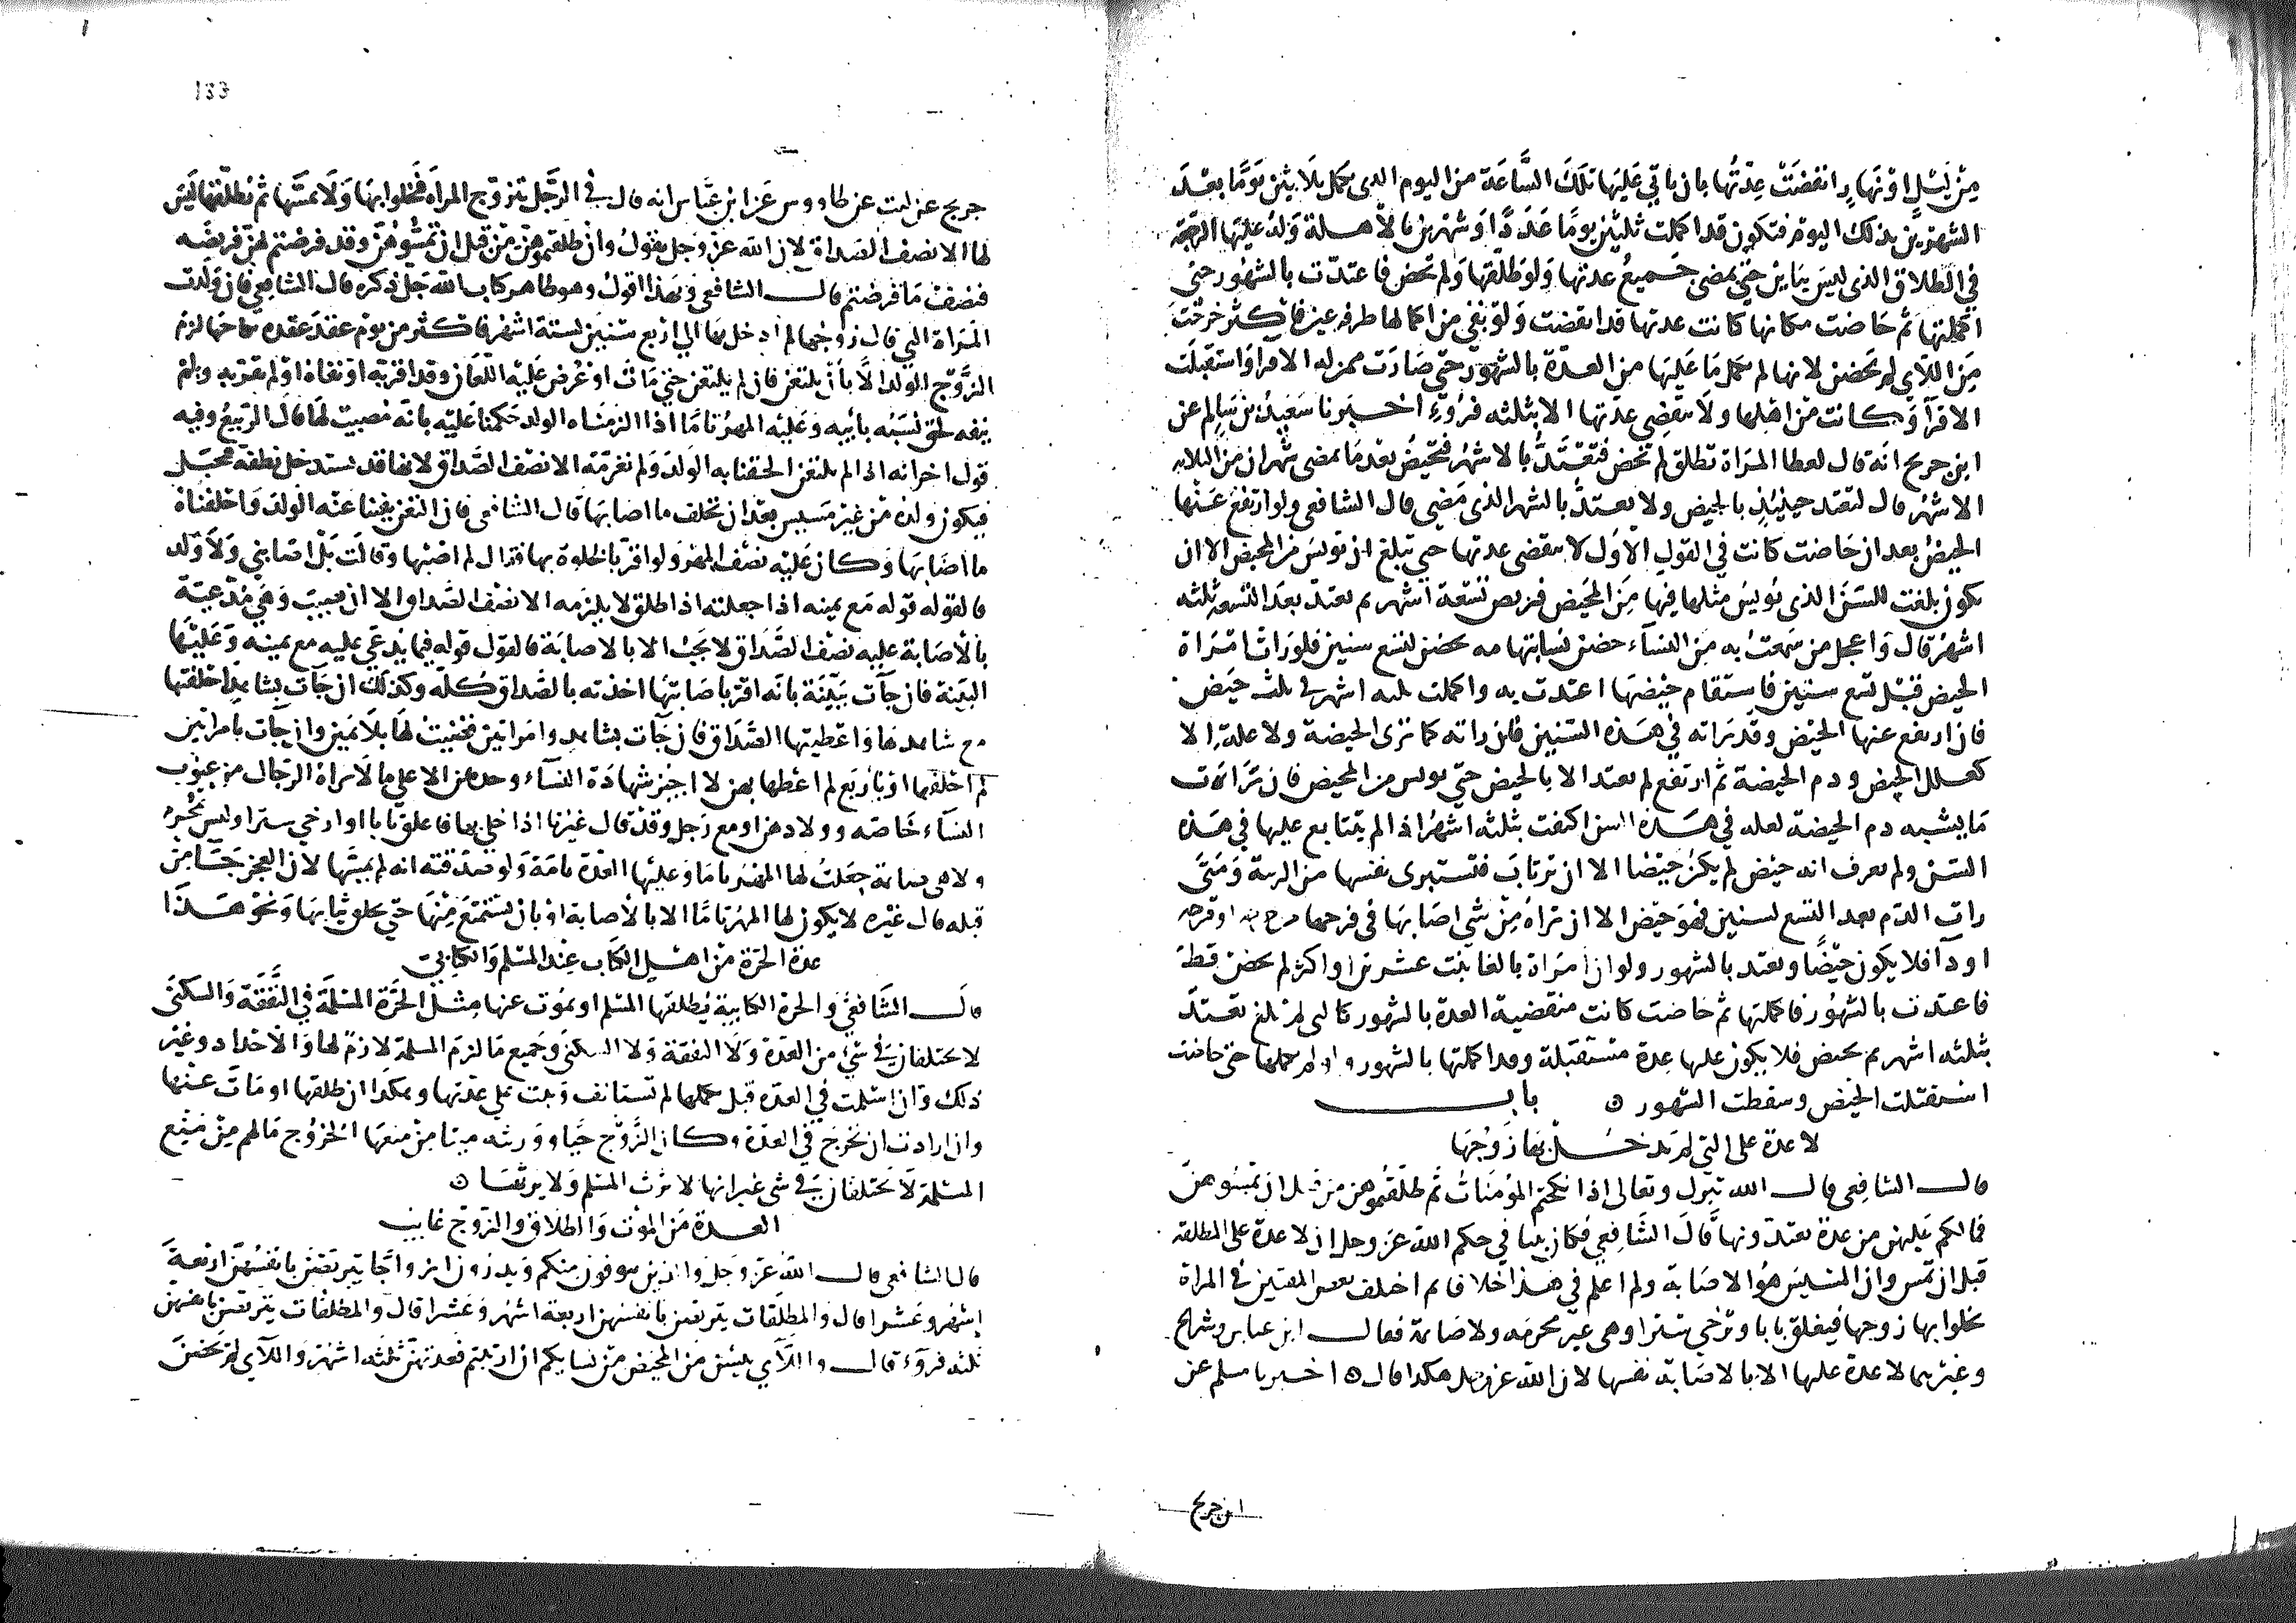 من ليل او نهار انقضت عدتها بان ياتي عليها تلك الساعة من اليوم الذي يكمل ثلاثين يوما بعد
الشهرين بذلك اليوم فتكون قد اكملت ثلثين يوما عددا وشهرين بالاهلة وله عليها الرجعة
في الطلاق الذي ليس بباين حتى يمضي جميع عدتها ولو طلقها ولم تحض فاعتدت بالشهور حتى
اكملتها ثم حاضت مكانها كانت عدتها قد انقضت ولو بقي من اكمالها طرفة عين فاكثر خرجت
من اللآي لم يحضن لانها لم تكمل ما عليها من العدة بالشهور حتى صارت ممن له الاقرا واستقبلت
الاقرآ وكانت من اهلها ولا تنقضي عدتها الا بثلثه قروء اخبرنا سعيد بن سالم عن
ابن جريج انه قال لعطا المراة تطلق لم تحض فتعتد بالاشهر فتحيض بعد ما يمضي شهران من الثلاثه
الاشهر قال لتعتد حينئذ بالحيض ولا يعتد بالشهر الذي مضى قال الشافعي ولو ارتفع عنها
الحيض بعد ان حاضت كانت في القول الاول لا تنقضي عدتها حتى تبلغ ان تويس من المحيض الا ان
تكون بلغت السن الذي يويس مثلها فيها من المحيض فتربص تسعة اشهر ثم تعتد بعد التسعه ثلثه
اشهر قال واعجل من سمعت به من النساء حضن نسا بتهامه يحضن لتسع سنين فلو رات امراة
الحيض قبل تسع سنين فاستقام حيضها اعتدت به واكملت ثلثه اشهر في ثلث حيض
فان ارتفع عنها الحيض وقد تراته في هذه السنين فان راته كما ترى الحيضة ولا علة الا
كعلل الحيض ودم الحيضة ثم ارتفع لم تعتد الا بالحيض حتى تويس من المحيض فان تراات
ما يشبه دم الحيضة لعله في هذه السن اكتفت بثلثه اشهر اذا لم يتتابع عليها في هذه
السن ولم تعرف انه حيض لم يكن حيضا الا ان ترتاب فتستبرى نفسها من الريبة ومتى
رات الدم بعد التسع لسنين فهو حيض الا ان تراه من شي اصابها في فرجها من جرح او قرحه
او دآ فلا يكون حيضا وتعتد بالشهور ولو ان امراة بالغا بنت عشرين او اكثر لم تحض قط
فاعتدت بالشهور فاكملتها ثم حاضت كانت منقضية العدة بالشهور كالتي لم تبلغ تعتد
بثلثه اشهر ثم تحيض فلا يكون عليها عدة مستقبلة وقد اكملتها بالشهور ولو لم تكملها حتى حاضت
استقبلت الحيض وسقطت الشهور ه باب
لا عدة على التي لم يدخل بها زوجها
قال الشافعي قال الله تبرك وتعالى اذا نكحتم المؤمنات ثم طلقتموهن من قبل ان تمسوهن
فما لكم عليهن من عدة تعتدونها قال الشافعي فكان بينا في حكم الله عز وجل ان لا عدة على المطلقه
قبل ان تمس وان المسيس هو الاصابة ولم اعلم في هذا خلافا ثم اختلف بعض المفتين في المراة
يخلوا بها زوجها فيغلق بابا ويرخي سترا وهي غير محرمه ولا صائمة فقال ابن عباس وشريح
وغيرهما لا عدة عليها الا بالاصابة نفسها لان الله عز وجل هكذا قال ه اخبرنا مسلم عن
ابن جريج
133
جريج عن ليث عن طاووس عن ابن عباس انه قال في الرجل يتزوج المراة فيخلوا بها ولا يمسها ثم يطلقها ليس
لها الا نصف الصداق لان الله عز وجل يقول وان طلقتموهن من قبل ان تمسوهن وقد فرضتم لهن فريضه
فنصف ما فرضتم قال الشافعي وبهذا اقول وهو ظاهر كتاب الله جل ذكره قال الشافعي فان ولدت
المراة التي قال زوجها لم ادخل بها الى اربع سنين لستة اشهر فاكثر من يوم عقد عقده نكاحها لزم
الزوج الولد الا بان يلتعن فان لم يلتعن حتى مات او عرض عليه اللعان وقد اقر به او نفاه او لم يقر به ولم
ينفه لحق نسبه بابيه وعليه المهر تاما اذا الزمناه الولد حكمنا عليه بانه مصيب لها قال الربيع وفيه
قول اخر انه اذا لم يلتعن الحقنا به الولد ولم نغرمه الا نصف الصداق لانها قد تستدخل نطفة فتحبل
فيكون ولده من غير مسيس بعد ان تحلف ما اصابها قال الشافعي فان التعن نفينا عنه الولد واحلفناه
ما اصابها وكان عليه نصف المهر ولو اقر بالخلوة بها فقال لم اصبها وقالت بل اصابني ولا ولد
فالقول قوله مع يمينه اذا جعلته اذا طلق لا يلزمه الا نصف الصداق الا ان يصيب وهي مدعية
بالاصابة عليه نصف الصداق لا يجب الا بالاصابة فالقول قوله فيما يدعي عليه مع يمينه وعليها
البينة فان جآت ببينة بانه اقر باصابتها اخذته بالصداق كله وكذلك ان جآت بشاهد احلفتها
مع شاهدها واعطيتها الصداق فان جآت بشاهد وامراتين قضيت لها بلا يمين وان جآت بامراتين
لم احلفها او باربع لم اعطها بهن لا اجيز شهادة النسآء وحدهن الا على ما لا يراه الرجال من عيوب
النسآء خاصه وولادهن او مع رجل وقد قال غيرنا اذا خلى بها فاغلق بابا او ارخي سترا وليس بمحرم
ولا هي صائمة جعلت لها المهر تاما وعليها العدة تامة ولو صدقته انه لم يمسها لان العجز جآ من
قبله قال غيره لا يكون لها المهر تاما الا بالاصابة او بان يستمتع منها حتى يخلق ثيابها ونحو هذا
عدة الحرة من اهل الكتاب عند المسلم والكتابي
قال الشافعي والحرة الكتابية يطلقها المسلم او يموت عنها مثل الحرة المسلمة في النفقة والسكنى
لا يختلفان في شي من العدة ولا النفقة ولا السكنى وجميع ما لزم المسلمة لازم لها والاحداد وغير
ذلك وان اسلمت في العدة قبل تكملها لم تستانف وبنت على عدتها وهكذا ان طلقها او مات عنها
وان ارادت ان تخرج في العدة وكان الزوج حيا وورثه ميتا من منعها الخروج ما لهم من منع
المسلمة لا يختلفان في شي غير انها لا ترث المسلم ولا يرثها ه
العدة من الموت والطلاق والزوج غايب
قال الشافعي قال الله عز وجل والذين يتوفون منكم ويذرون ازواجا يتربصن بانفسهن اربعة
اشهر وعشرا قال والمطلقات يتربصن بانفسهن اربعة اشهر وعشرا قال والمطلقات يتربصن بانفسهن
ثلثه قروء قال واللآي يئسن من المحيض من نسايكم ان ارتبتم فعدتهن ثلثه اشهر واللآي لم يحضن